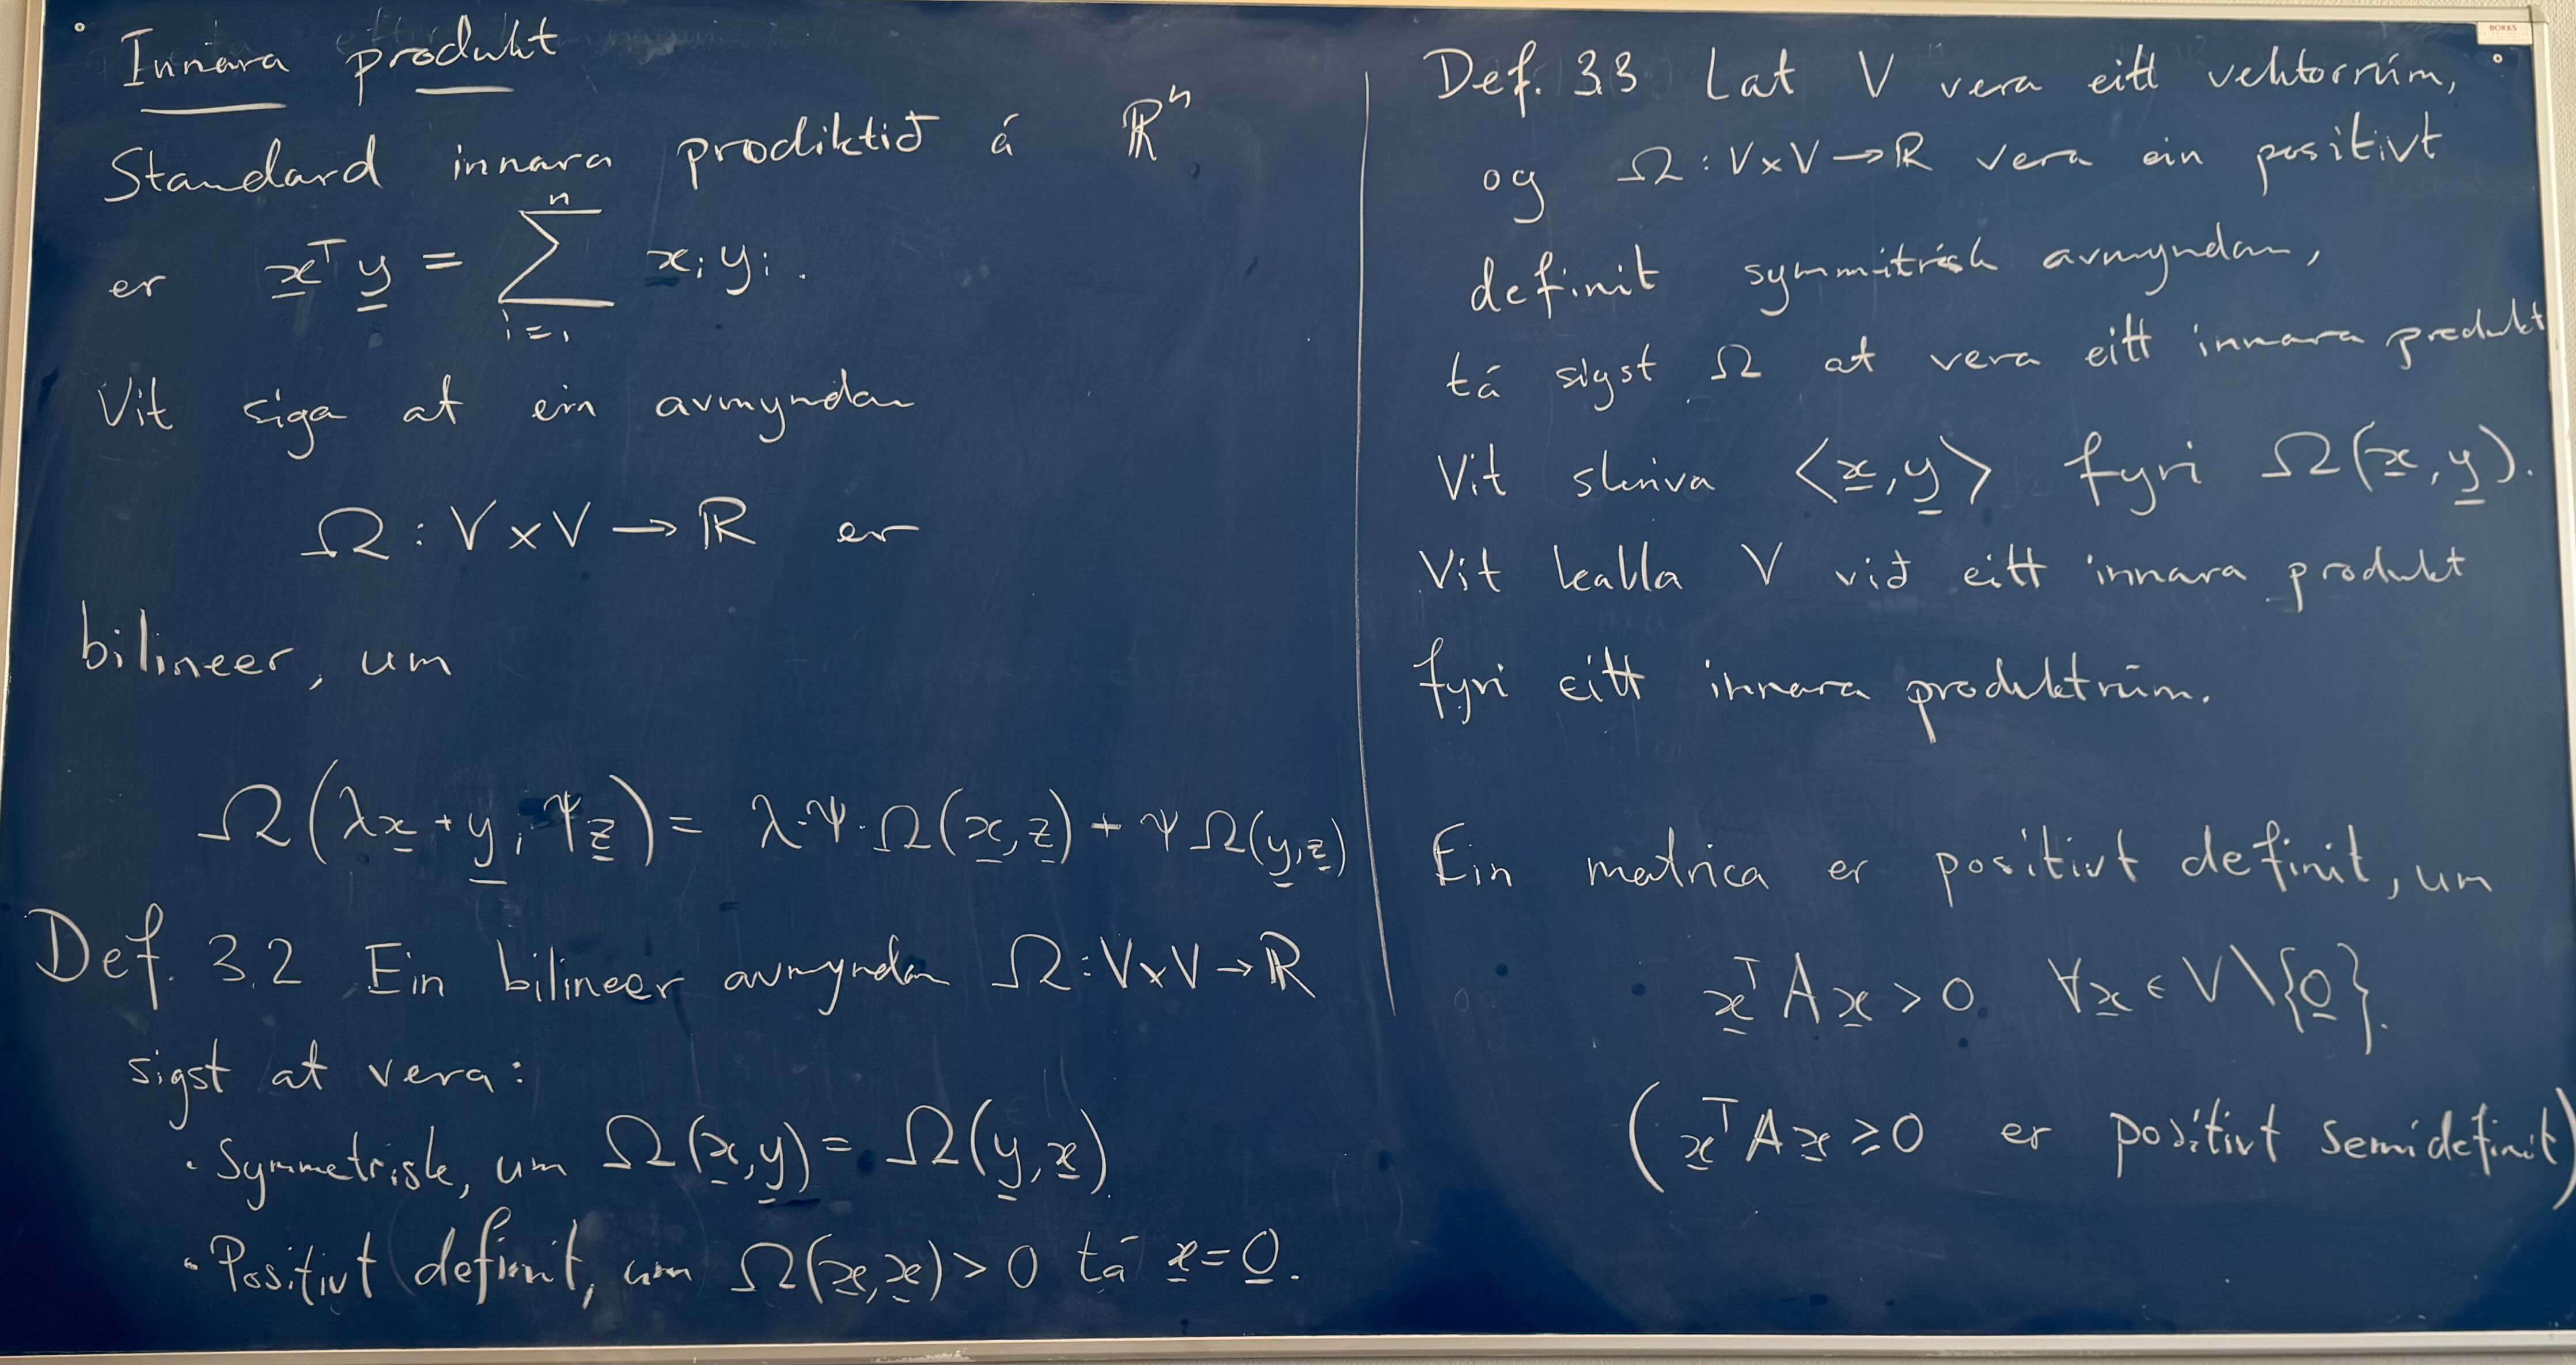 Innara produkt
Standard innara prodiktið á ℝⁿ
er x̲ᵀ y̲ = ∑ᵢ₌₁ⁿ xᵢ yᵢ .
Vit siga at ein avmyndan
Ω : V × V → ℝ er
bilineer, um
Ω(λx̲ + y̲, ψz̲) = λ·ψ·Ω(x̲, z̲) + ψ Ω(y̲, z̲)
Def. 3.2 Ein bilineer avmyndan Ω : V × V → ℝ
sigst at vera:
• Symmetrisk, um Ω(x̲, y̲) = Ω(y̲, x̲)
• Positivt definit, um Ω(x̲, x̲) > 0 tá x̲ = 0̲.
Def. 3.3 Lat V vera eitt vektorrúm,
og Ω : V × V → ℝ vera ein positivt
definit symmitrisk avmyndan,
tá sigst Ω at vera eitt innara produkt
Vit skriva ⟨x̲, y̲⟩ fyri Ω(x̲, y̲).
Vit kalla V við eitt innara produkt
fyri eitt innara produktrúm.
Ein matrica er positivt definit, um
x̲ᵀ A x̲ > 0 ∀x̲ ∈ V \ {0̲}.
(x̲ᵀ A x̲ ≥ 0 er positivt semidefinit)